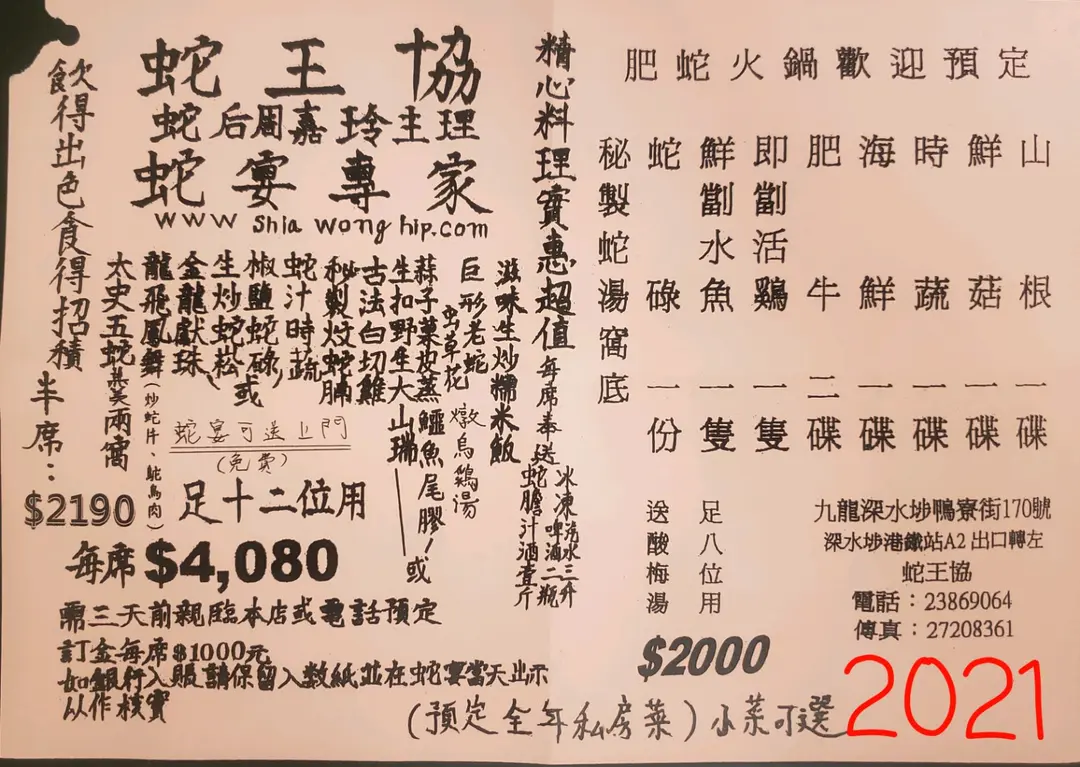 蛇王協
蛇后周嘉玲主理
蛇宴專家
www shia wong hip.com
飲得出色食得招積
半席：
$2190
太史五蛇羹兩窩
龍飛鳳舞（炒蛇片、鴕鳥肉）
金龍獻珠
生炒蛇崧（或
椒鹽蛇碌）
蛇汁時蔬
秘製炆蛇腩
古法白切雞
生扣野生大山瑞——或
蒜子菓皮蒸鱷魚尾膠！
巨形老蛇
虫草花
燉烏鷄湯
滋味生炒糯米飯
精心料理實惠超值
每席奉送
冰凍汽水三升
啤酒二瓶
蛇膽汁酒壹斤
蛇宴可送上門
（免費）
足十二位用
每席$4,080
需三天前親臨本店或電話預定
訂金每席$1000元
如銀行入賬請保留入數紙並在蛇宴當天出示
以作核實
（預定全年私房菜）小菜可選
肥蛇火鍋歡迎預定
秘製蛇湯窩底
蛇碌一份
鮮劏水魚一隻
即劏活鷄一隻
肥牛二碟
海鮮一碟
時蔬一碟
鮮菇一碟
山根一碟
送酸梅湯
足八位用
$2000
九龍深水埗鴨寮街170號
深水埗港鐵站A2出口轉左
蛇王協
電話：23869064
傳真：27208361
2021